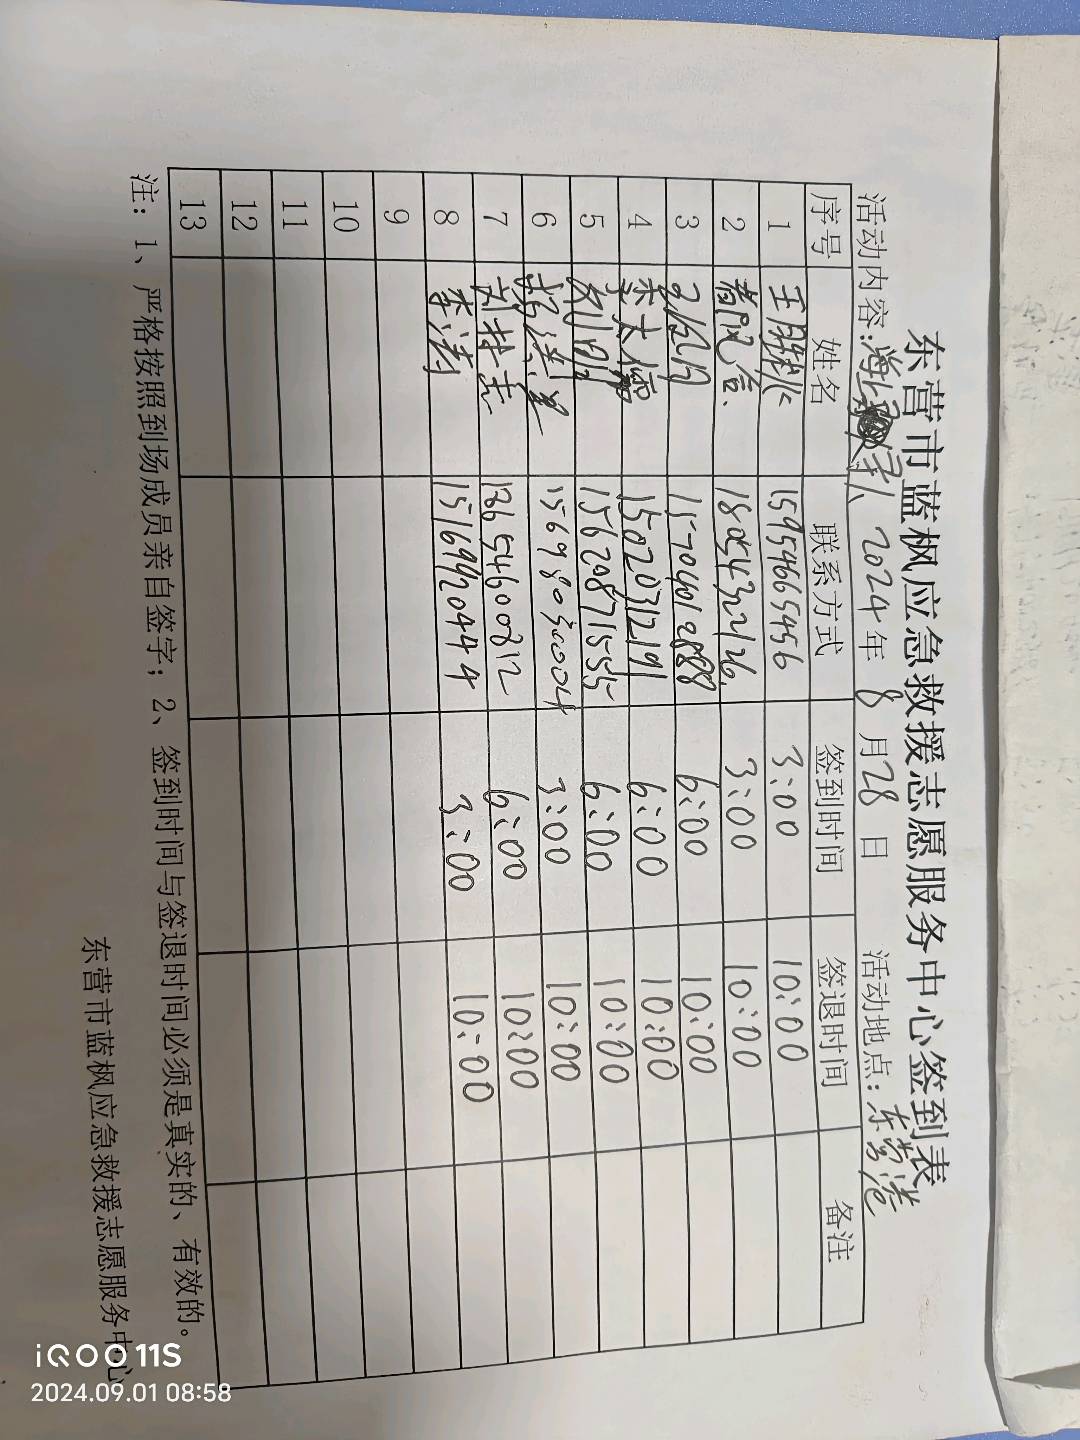 东营市蓝枫应急救援志愿服务中心签到表
活动内容:海上寻人 2024年8月28日 活动地点:东营港
序号 姓名 联系方式 签到时间 签退时间 备注
1 15954665456 3:00 10:00
2 18054322126 3:00 10:00
3 6:00 10:00
4 15020312191 6:00 10:00
5 15620871555 6:00 10:00
6 15698030004 3:00 10:00
7 13654600812 6:00 10:00
8 李涛 15169920444 3:00 10:00
9
10
11
12
13
注:1、严格按照到场成员亲自签字;2、签到时间与签退时间必须是真实的、有效的。
东营市蓝枫应急救援志愿服务中心
iQOO 11S
2024.09.01 08:58